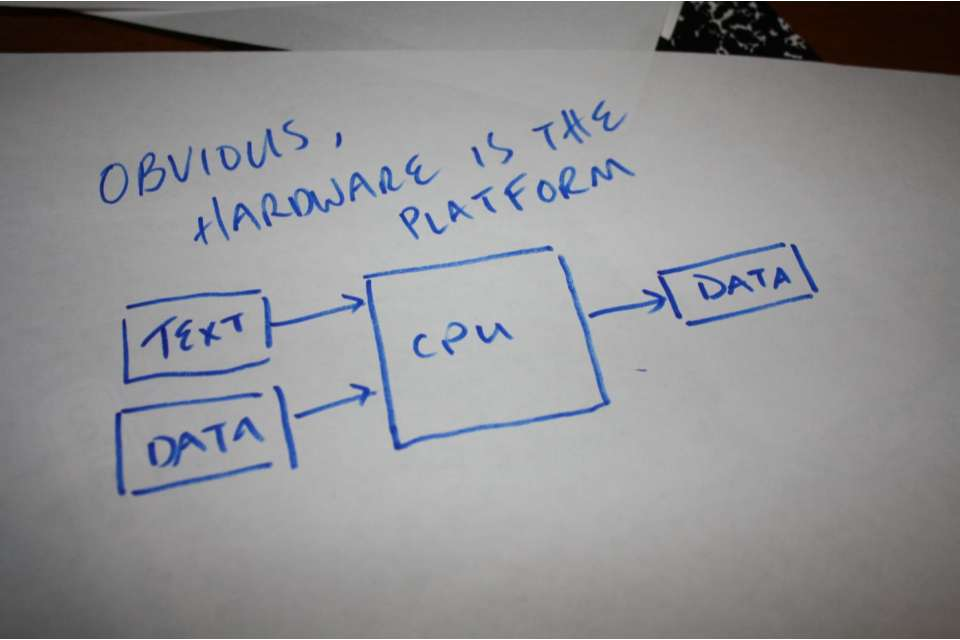 OBVIOUS,
HARDWARE IS THE
PLATFORM
TEXT
CPU
DATA
DATA